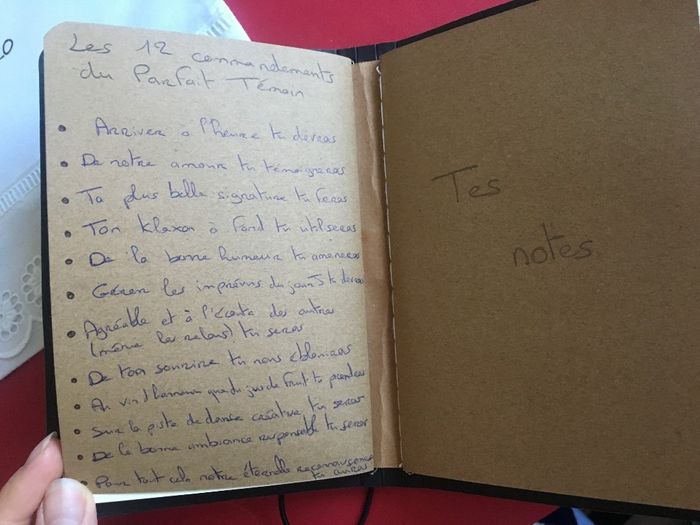 Les 12 commandements
du Parfait Témoin
• Arriver à l'heure tu devras
• De notre amour tu témoigneras
• Ta plus belle signature tu feras
• Ton klaxon à fond tu utilseras
• De la bonne humeur tu amèneras
• Gérer les imprévus du jour J tu devras
• Agréable et à l'écoute des autres
(même les relous) tu seras
• De ton sourire tu nous éblouiras
• Au vin d'honneur que du jus de fruit tu prendras
• Sur la piste de danse créative tu seras
• De la bonne ambiance responsable tu seras
• Pour tout cela notre éternelle reconnaissance
tu auras
Tes
notes